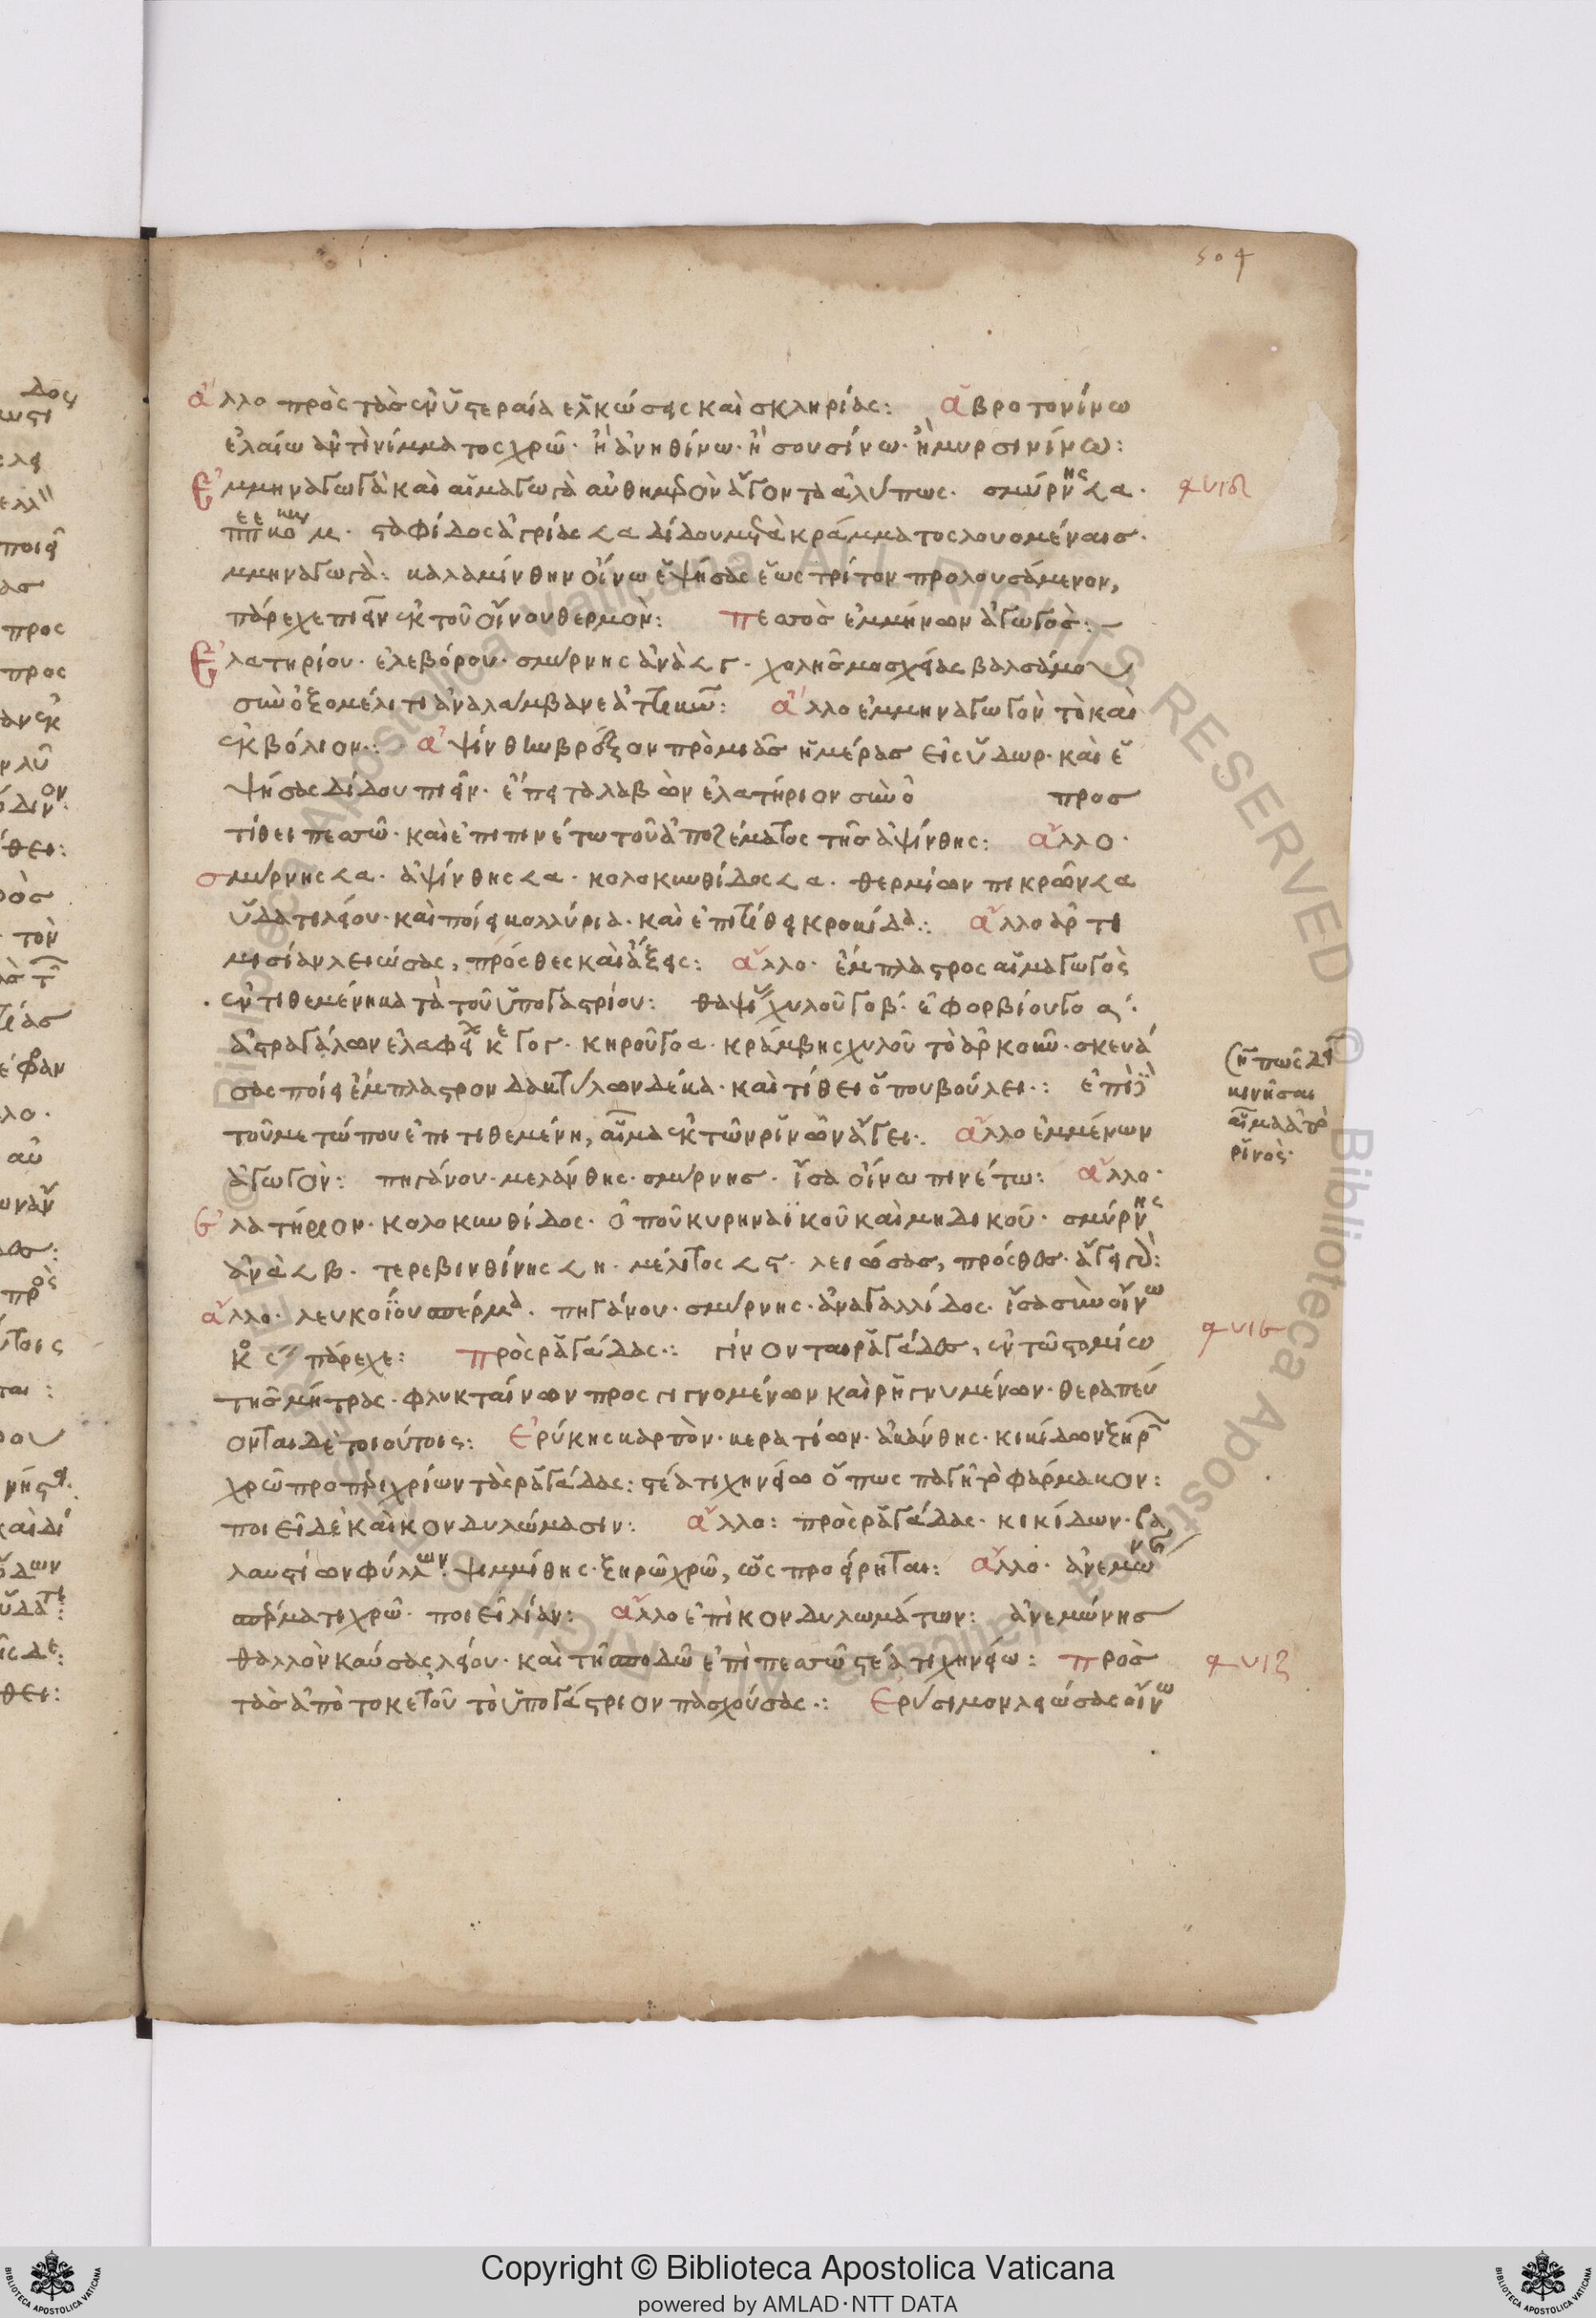 504
ἄλλο πρὸς τὰς ἐν ὑστεραία ἑλκώσεις καὶ σκληρίας: ἀβροτονίνω
ἐλαίω ἀντὶ νίμματος χρῶ· ἢ ἀνηθίνω· ἢ σουσίνω· ἢ μυρσινίνω:
Ἐμμηναγωγὰ καὶ αἱμαγωγὰ αὐθημερὸν ἄγοντα ἀλύπως· σμύρνης 𐅻 α· φνιδ
σταφίδος ἀγρίας 𐅻 α δίδου μετὰ κράμματος λουομέναισ·
μμηναγωγὰ: καλαμίνθην οἴνω ἑψήσας ἕως τρίτον προλουσάμενον,
πάρεχε πιεῖν ἐκ τοῦ οἴνου θερμὸν: πεσσὸς ἐμμήνων ἀγωγὸς:
Ἐλατηρίου· ἐλεβόρου· σμύρνης ἀνὰ 𐅻 γ· χολῆς μοσχείας βαλσάμου
σὺν ὀξομέλιτι ἀναλάμβανε ἀττικῶ: ἄλλο ἐμμηναγωγὸν τὸ καὶ
ἐκβόλιον: ἀψίνθιον βρέξον πρὸ μιᾶς ἡμέρασ εἰς ὕδωρ· καὶ ἑ
ψήσας δίδου πιεῖν· ἔπειτα λαβὼν ἐλατήριον σὺν ὀ προσ
τίθει πεσσῶ· καὶ ἐπιπινέτω τοῦ ἀποζέματος τῆς ἀψίνθης: ἄλλο·
σμύρνης 𐅻 α· ἀψίνθης 𐅻 α· κολοκυνθίδος 𐅻 α· θερμίων πικρῶν 𐅻 α
ὕδατι λείου· καὶ ποίει κολλύρια· καὶ ἐπιτίθει κροκίδα: ἄλλο ἀρτε
μισίαν λειώσας, πρόσθες καὶ ἄξεις: ἄλλο· ἔμπλαστρος αἱμαγωγὸς
ἐντιθεμένη κατὰ τοῦ ὑπογαστρίου: θαψίας χυλοῦ γο β· εὐφορβίου γο α·
ἀστραγάλων ἐλαφεί κε γο γ· κηροῦ γο α· κράμβης χυλοῦ τὸ ἀρκοῦν· σκευά
σας ποίει ἔμπλαστρον δακτύλων δέκα· καὶ τίθει ὅπου βούλει: ἐπὶ
τοῦ μετώπου ἐπιτιθεμένη, αἷμα ἐκ τῶν ῥινῶν ἄγει: ἄλλο ἐμμένων
ἢ πῶς δεῖ
κινῆσαι
αἷμα ἀπὸ
ῥινὸς·
ἀγωγὸν: πηγάνου· μελάνθης· σμύρνης· ἴσα οἴνω πινέτω: ἄλλο·
Ἐλατήριον· κολοκυνθίδος· ὀποῦ κυρηναϊκοῦ καὶ μηδικοῦ· σμύρνης
ἀνὰ 𐅻 β· τερεβινθίνης 𐅻 η· μέλιτος 𐅻 ς· λειώσας, πρόσθες· ἄγει γὰρ:
ἄλλο· λευκοΐου σπέρμα· πηγάνου· σμύρνης· ἀναγαλλίδος· ἴσα σὺν οἴνω
πάρεχε: πρὸς ῥαγάδας: γίνονται ῥαγάδες, ἐν τῶ στομίω φνιε
τῆς μήτρας· φλυκταίνων προσγιγνομένων καὶ ῥηγνυμένων· θεραπεύ
ονται δὲ τοιούτοις: Ἐρύκης καρπὸν· κερατίων· ἀκάνθης· κικίδων ξηρ
χρῶ προπεριχρίων τὰς ῥαγάδας: στέατι χηνείω ὅπως παγῆ τὸ φάρμακον:
ποιεῖ δὲ καὶ κονδυλώμασιν: ἄλλο: πρὸς ῥαγάδας· κικίδων· βα
λαυστίων φύλλων· ψιμμίθης· ξηρῶ χρῶ, ὡς προείρηται: ἄλλο· ἀνεμώνης
σπέρματι χρῶ· ποιεῖ λίαν: ἄλλο ἐπὶ κονδυλωμάτων: ἀνεμώνης
θαλλὸν καύσας λείου· καὶ τῆ σποδῶ ἐπὶ πεσσῶ στέατι χηνείω: πρὸς φνιζ
τὰς ἀπὸ τοκετοῦ τὸ ὑπογάστριον πασχούσας: Ἐρύσιμον λειώσας οἴνω
Copyright © Biblioteca Apostolica Vaticana
powered by AMLAD·NTT DATA